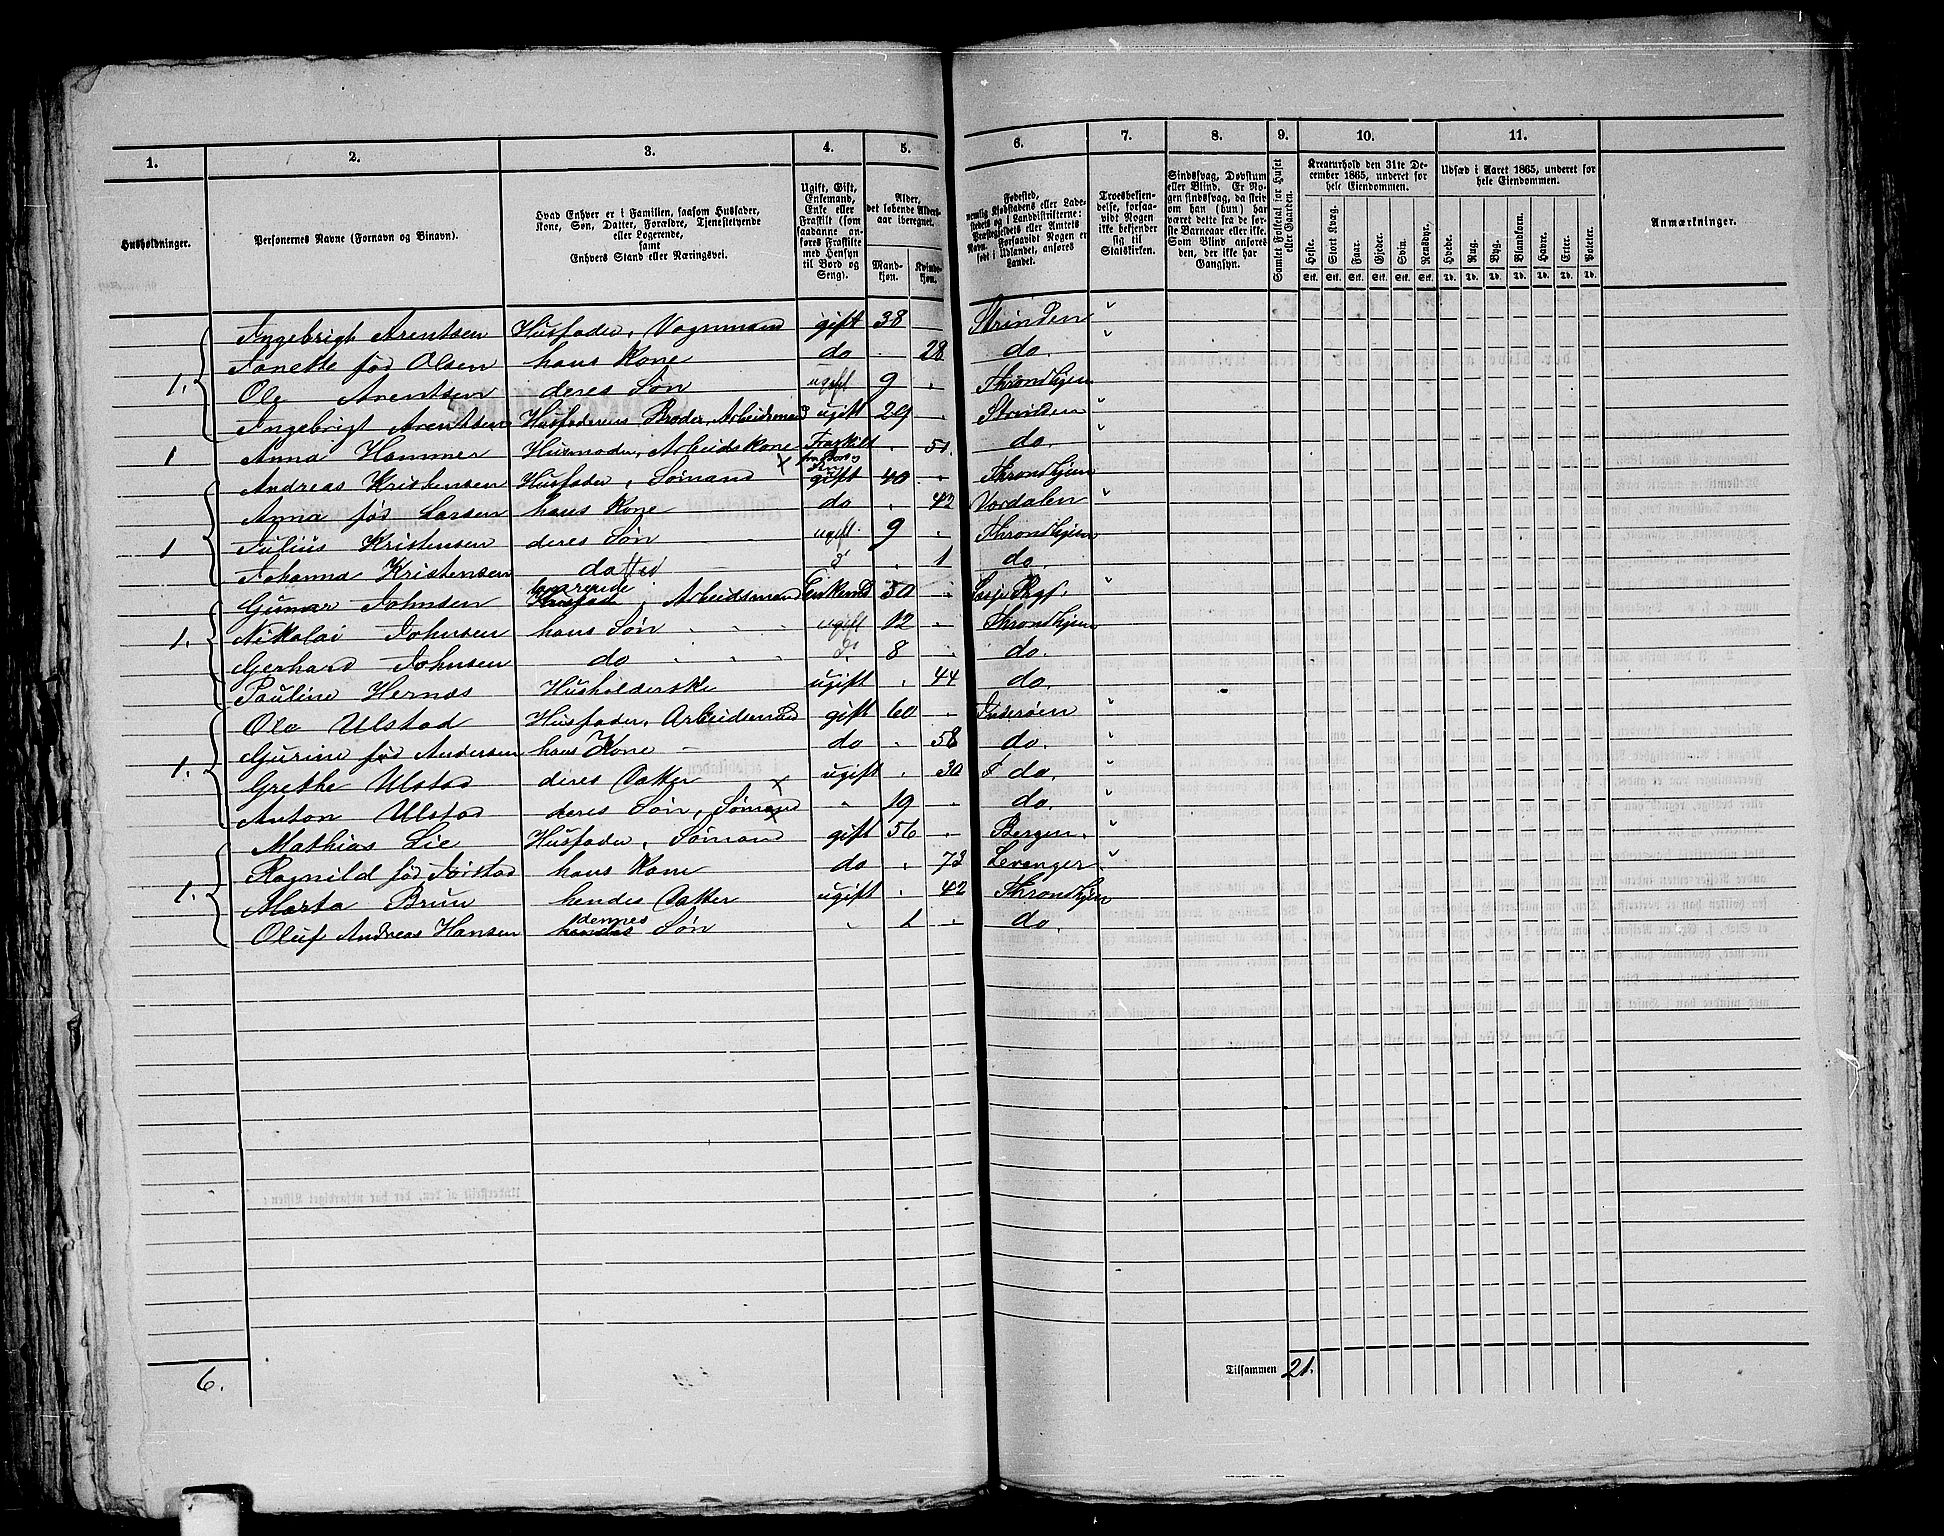 1. 2. 3. 4. 5. 6. 7. 8. 9. 10. 11.
Husholdninger.
Personernes Navne (Fornavn og Binavn).
Hvad Enhver er i Familien, saasom Husfader, Kone, Søn, Datter, Forældre, Tjenestetyende eller Logerende, samt Enhvers Stand eller Næringsvei.
Ugift, Gift, Enkemand, Enke eller Fraskilt (som saadanne anføres Fraskilte med Hensyn til Bord og Seng).
Alder, det løbende Aldersaar iberegnet.
Mandkjøn. Kvindekjøn.
Fødested, nemlig Kjøbstadens eller Ladestedets og i Landdistrikterne: Præstegjeldets eller Amtets Navn. Forsaavidt Nogen er født i Udlandet, anføres Landet.
Troesbekjendelse, forsaavidt Nogen ikke bekjender sig til Statskirken.
Sindssvag, Døvstum eller Blind. Er Nogen sindssvag, da skrives om han (hun) har været dette fra de første Barneaar eller ikke. Som Blind anføres den, der ikke har Gangsyn.
Samlet Folketal for Huset eller Gaarden.
Kreaturhold den 31te December 1865, underet for hele Eiendommen.
Heste. Stort Kvæg. Faar. Gjeder. Svin. Rensdyr.
Stk. Stk. Stk. Stk. Stk. Stk.
Udsæd i Aaret 1865, underet for hele Eiendommen.
Hvede. Rug. Byg. Blandkorn. Havre. Erter. Poteter.
Td. Td. Td. Td. Td. Td. Td.
Anmærkninger.
Ingebrigt Arentsen Husfader, Vognmand gift 38 Strinden "
Jonette fød Olsen hans Kone do 28 do. "
1. Ole Arentsen deres Søn ugift 9 Throndhjem
Ingebrigt Arentsen Husfaderens Broder, Arbeidsmand ugift 29 Strinden "
1 Anna Hammer Husmoder, Arbeidskone Fraskilt 51. do. "
Andreas Kristensen Husfader, Sømand gift 40 Throndhjem
Anna fød Larsen hans Kone do 42 Vordalen "
1 Julius Kristensen deres Søn ugift 9 Throndhjem
Johanna Kristensen do 1 do.
Gunnar Johnsen Arbeidsmand Enkemd 50 "
1. Nikolai Johnsen hans Søn ugift 12 Throndhjem
Gerhard Johnsen do do 8 do.
Pauline Hernæs Husholderske ugift 44 do.
Ole Ulstad Husfader, Arbeidsmand gift 60 Inderøen "
1. Gurine fød Andersen hans Kone do 58 do. "
Grethe Ulstad deres Datter ugift 30 do. "
Anton Ulstad deres Søn, Sømand " 19 do. "
Mathias Lie Husfader, Sømand gift 56 Bergen. "
Ragnild fød Førstad hans Kone do 73 Levanger "
1. Marta Brun hendes Datter ugift 42 Throndhjem
Oluf Andreas Hansen dennes Søn " 1 do.
6.
Tilsammen 21.